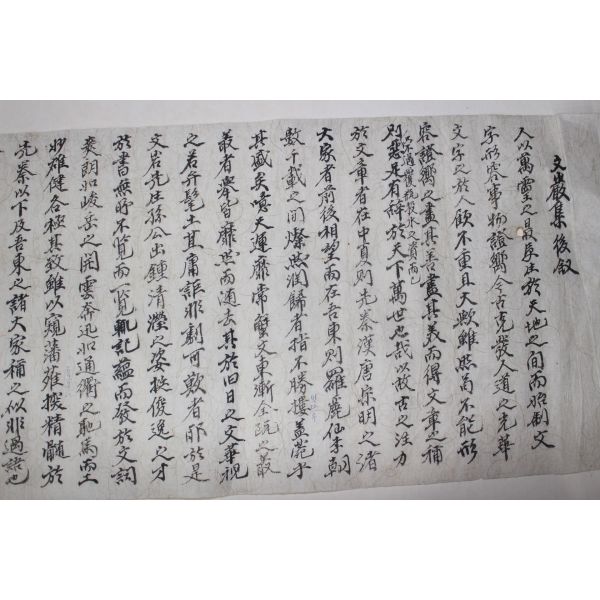 文巖集後叙
人以萬靈之最長生於天地之間而始制文
字形容事物證嚮今古克發人道之光華
文字之於人顧不重且大歟雖然苟不能形
容證嚮之盡其善盡其義而得文章之稱
則恐不過覆瓿裂水之資而已
則惡足有辭於天下萬世也哉以故古之注力
於文章者在中夏則先秦漢唐宋明之諸
大家者前後相望而在吾東則羅麗仙李朝
數千載之間燦然洞歸者指不勝摟盖菀乎
其盛矣噫天運靡常蟹文東漸全阮之最
叢者擧皆靡然而適去其於旧日之文華視
之若弁髦土苴庸詎非劇可歎者耶於是
文岩先生孫公出鍾清瀅之姿挾俊逸之才
於書無所不覧而一覧輒記蘊而發於文詞
爽朗如峻岳之開雲奔迅如通衢之馳馬而工
妙雄健各極其致雖以窺藩蘺撥精髓於
先秦以下及吾東之諸大家稱之似非過語也